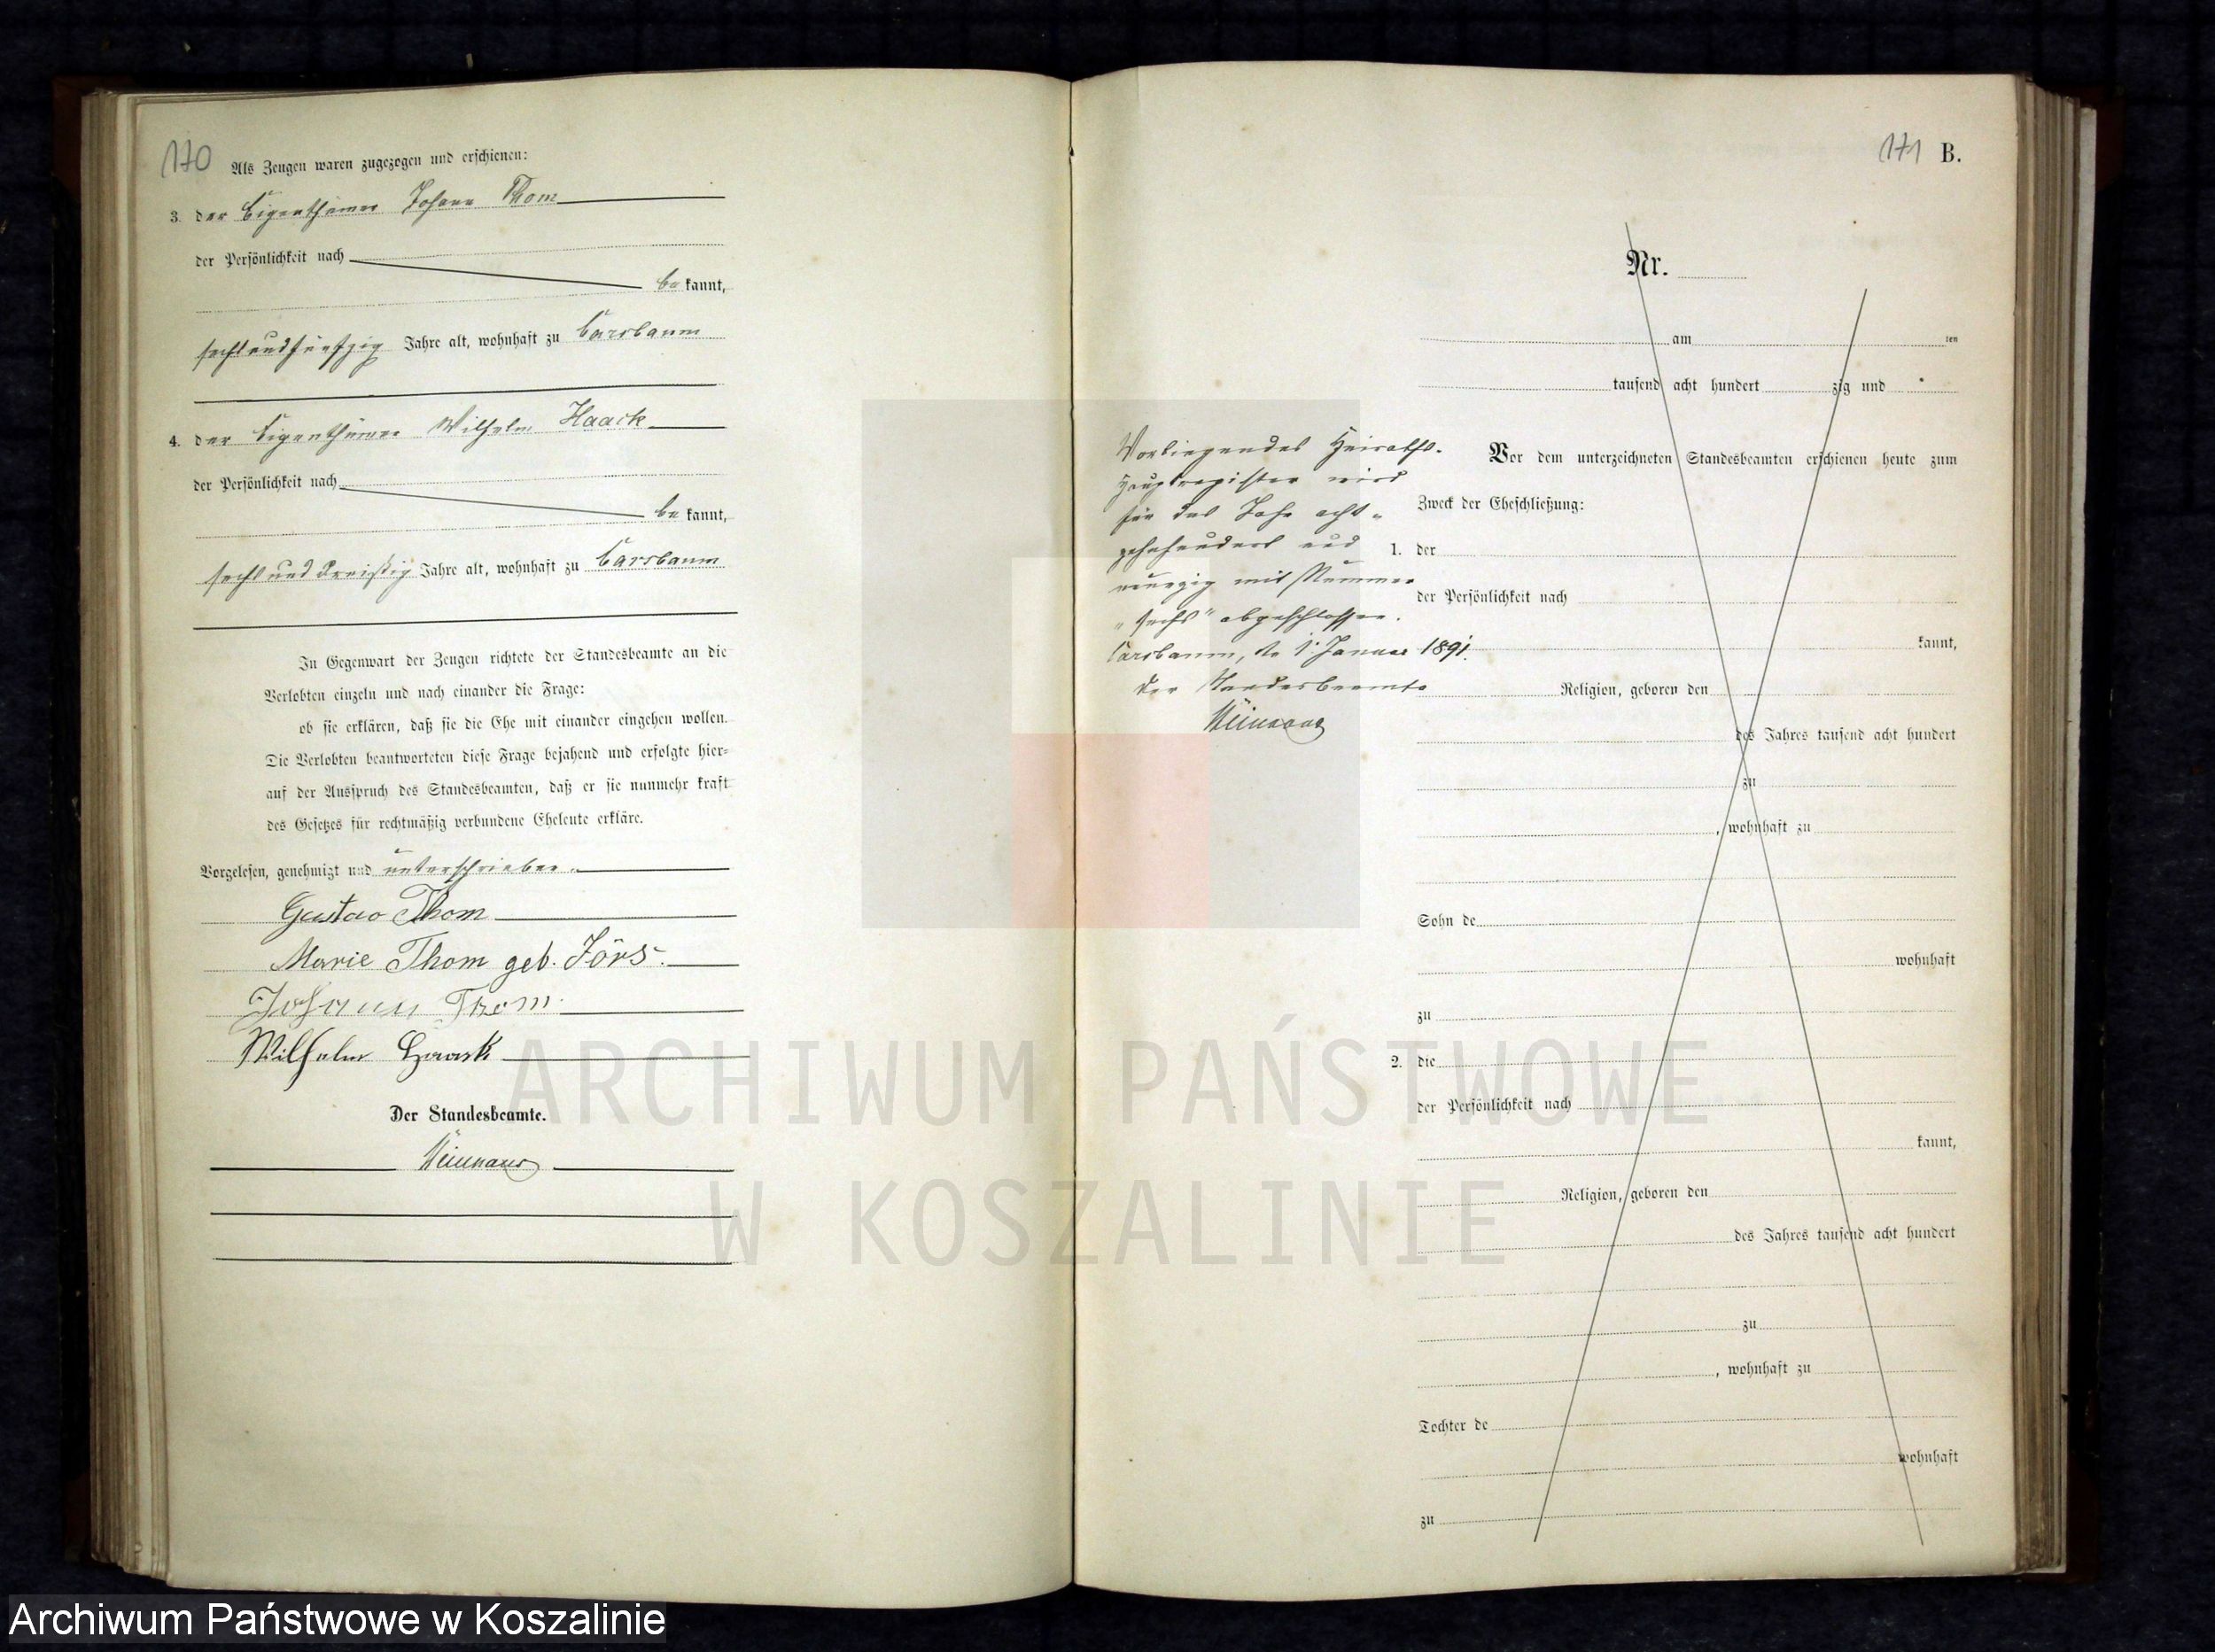 170
Als Zeugen waren zugezogen und erschienen:
3. der Eigenthümer Johann Thom
der Persönlichkeit nach
be kannt,
sechsundfünfzig Jahre alt, wohnhaft zu Carsbaum
4. der Eigenthümer Wilhelm Haack
der Persönlichkeit nach
be kannt,
sechsunddreißig Jahre alt, wohnhaft zu Carsbaum
In Gegenwart der Zeugen richtete der Standesbeamte an die
Verlobten einzeln und nach einander die Frage:
ob sie erklären, daß sie die Ehe mit einander eingehen wollen.
Die Verlobten beantworteten diese Frage bejahend und erfolgte hier-
auf der Ausspruch des Standesbeamten, daß er sie nunmehr kraft
des Gesetzes für rechtmäßig verbundene Eheleute erkläre.
Vorgelesen, genehmigt und unterschrieben.
Gustav Thom
Marie Thom geb. Jörs.
Johann Thom.
Wilhelm Haack
Der Standesbeamte.
171 B.
Nr.
am ten
tausend acht hundert zig und
Vorliegendes Heiraths-
Hauptregister wird
für das Jahr acht-
zehnhundert und
neunzig mit Nummer
"sechs" abgeschlossen.
Carsbaum, de 1. Januar 1891.
Der Standesbeamte
Vor dem unterzeichneten Standesbeamten erschienen heute zum
Zweck der Eheschließung:
1. der
der Persönlichkeit nach
kannt,
Religion, geboren den
des Jahres tausend acht hundert
zu
, wohnhaft zu
Sohn de
wohnhaft
zu
2. die
der Persönlichkeit nach
kannt,
Religion, geboren den
des Jahres tausend acht hundert
zu
, wohnhaft zu
Tochter de
wohnhaft
zu
ARCHIWUM PAŃSTWOWE
W KOSZALINIE
Archiwum Państwowe w Koszalinie